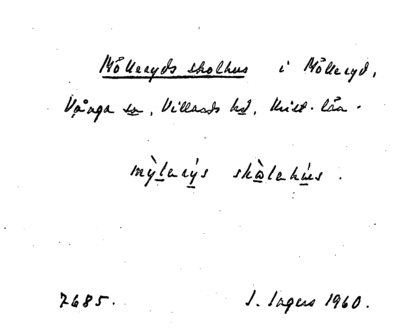 Mölleryds skolhus i Mölleryd,
Vånga sn, Villands hd, Krist. län.
mỳlarýs skòlahús.
7685. I. Ingers 1960.